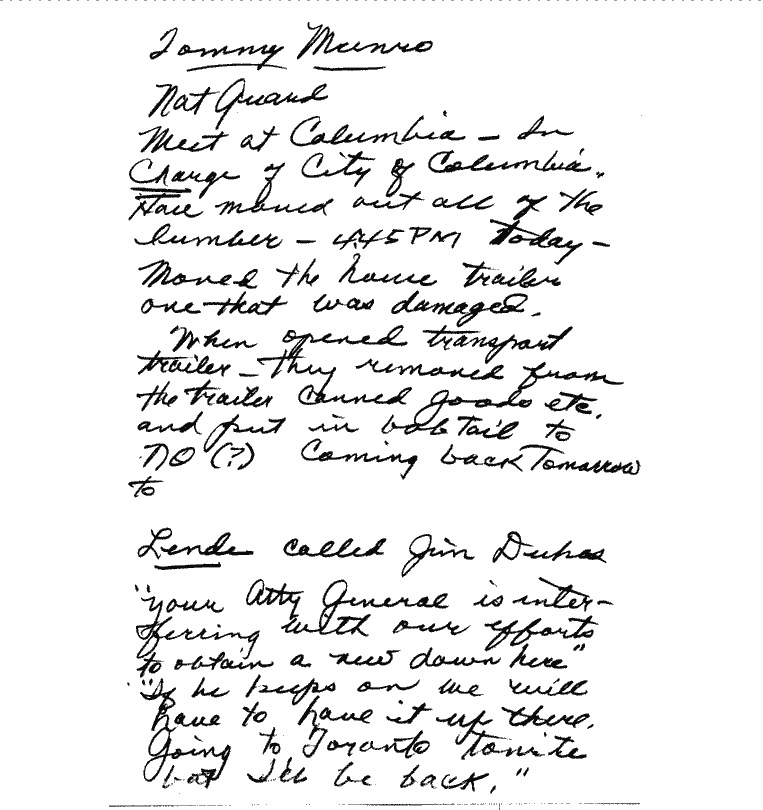 Tommy Munro
Nat Guard
Meet at Columbia - In
Charge of City of Columbia.
Have moved out all of the
lumber - 4:45 PM today -
Moved the house trailer
one that was damaged.
When opened transport
trailer - they removed from
the trailer canned goods etc.
and put in bobtail to
NO (?) Coming back Tomorrow
to
called Jim
"your Atty General is inter-
ferring with our efforts
to obtain a new down here"
"If he keeps on we will
have to have it up there.
Going to Toronto tonite
but I'll be back."